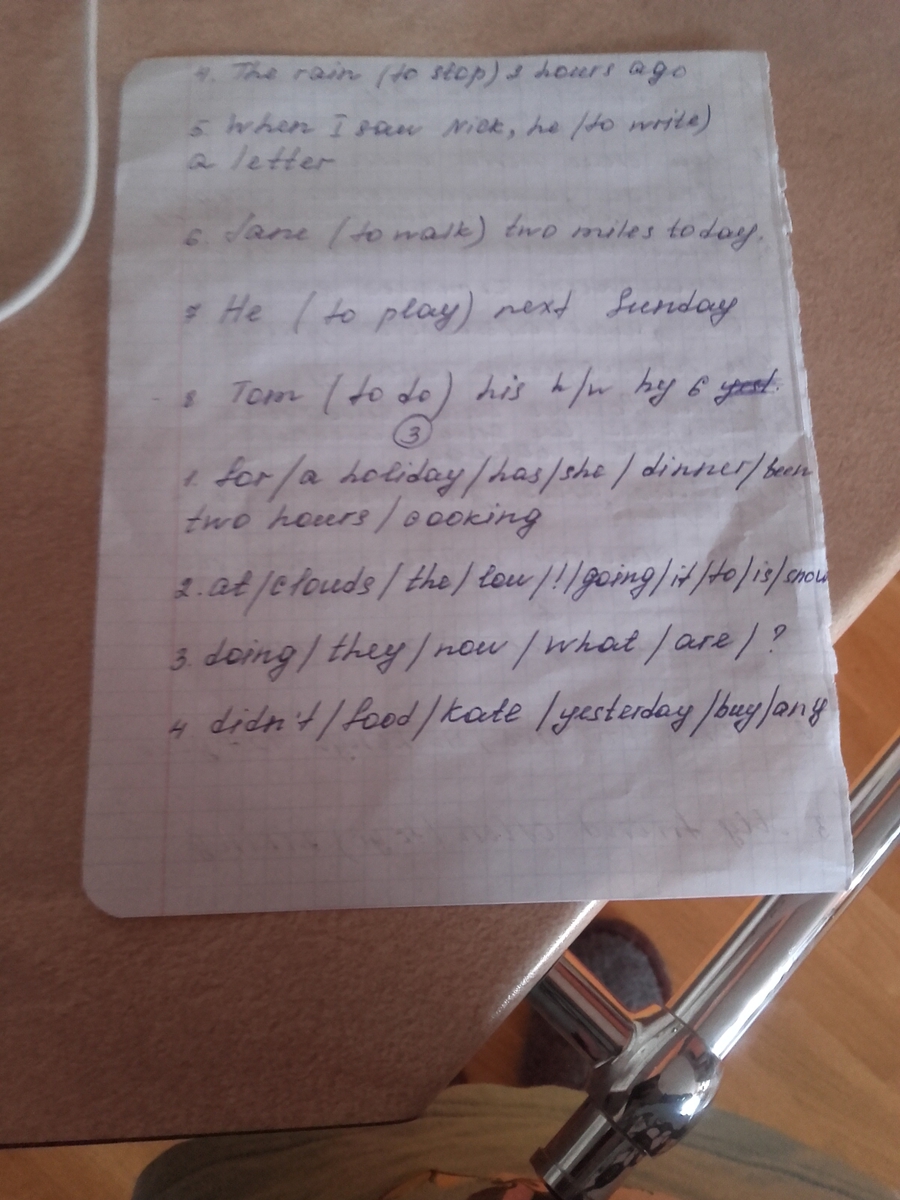 4. The rain (to stop) 2 hours ago
5 When I saw Nick, he (to write)
a letter
6. Jane (to walk) two miles today.
7 He (to play) next Sunday
8 Tom (to do) his h/w by 6 yest.
3
1. for/a holiday/has/she/dinner/been
two hours/cooking
2. at/clouds/the/low/!/going/it/to/is/snow
3. doing/they/now/what/are/?
4 didn't/food/Kate/yesterday/buy/any